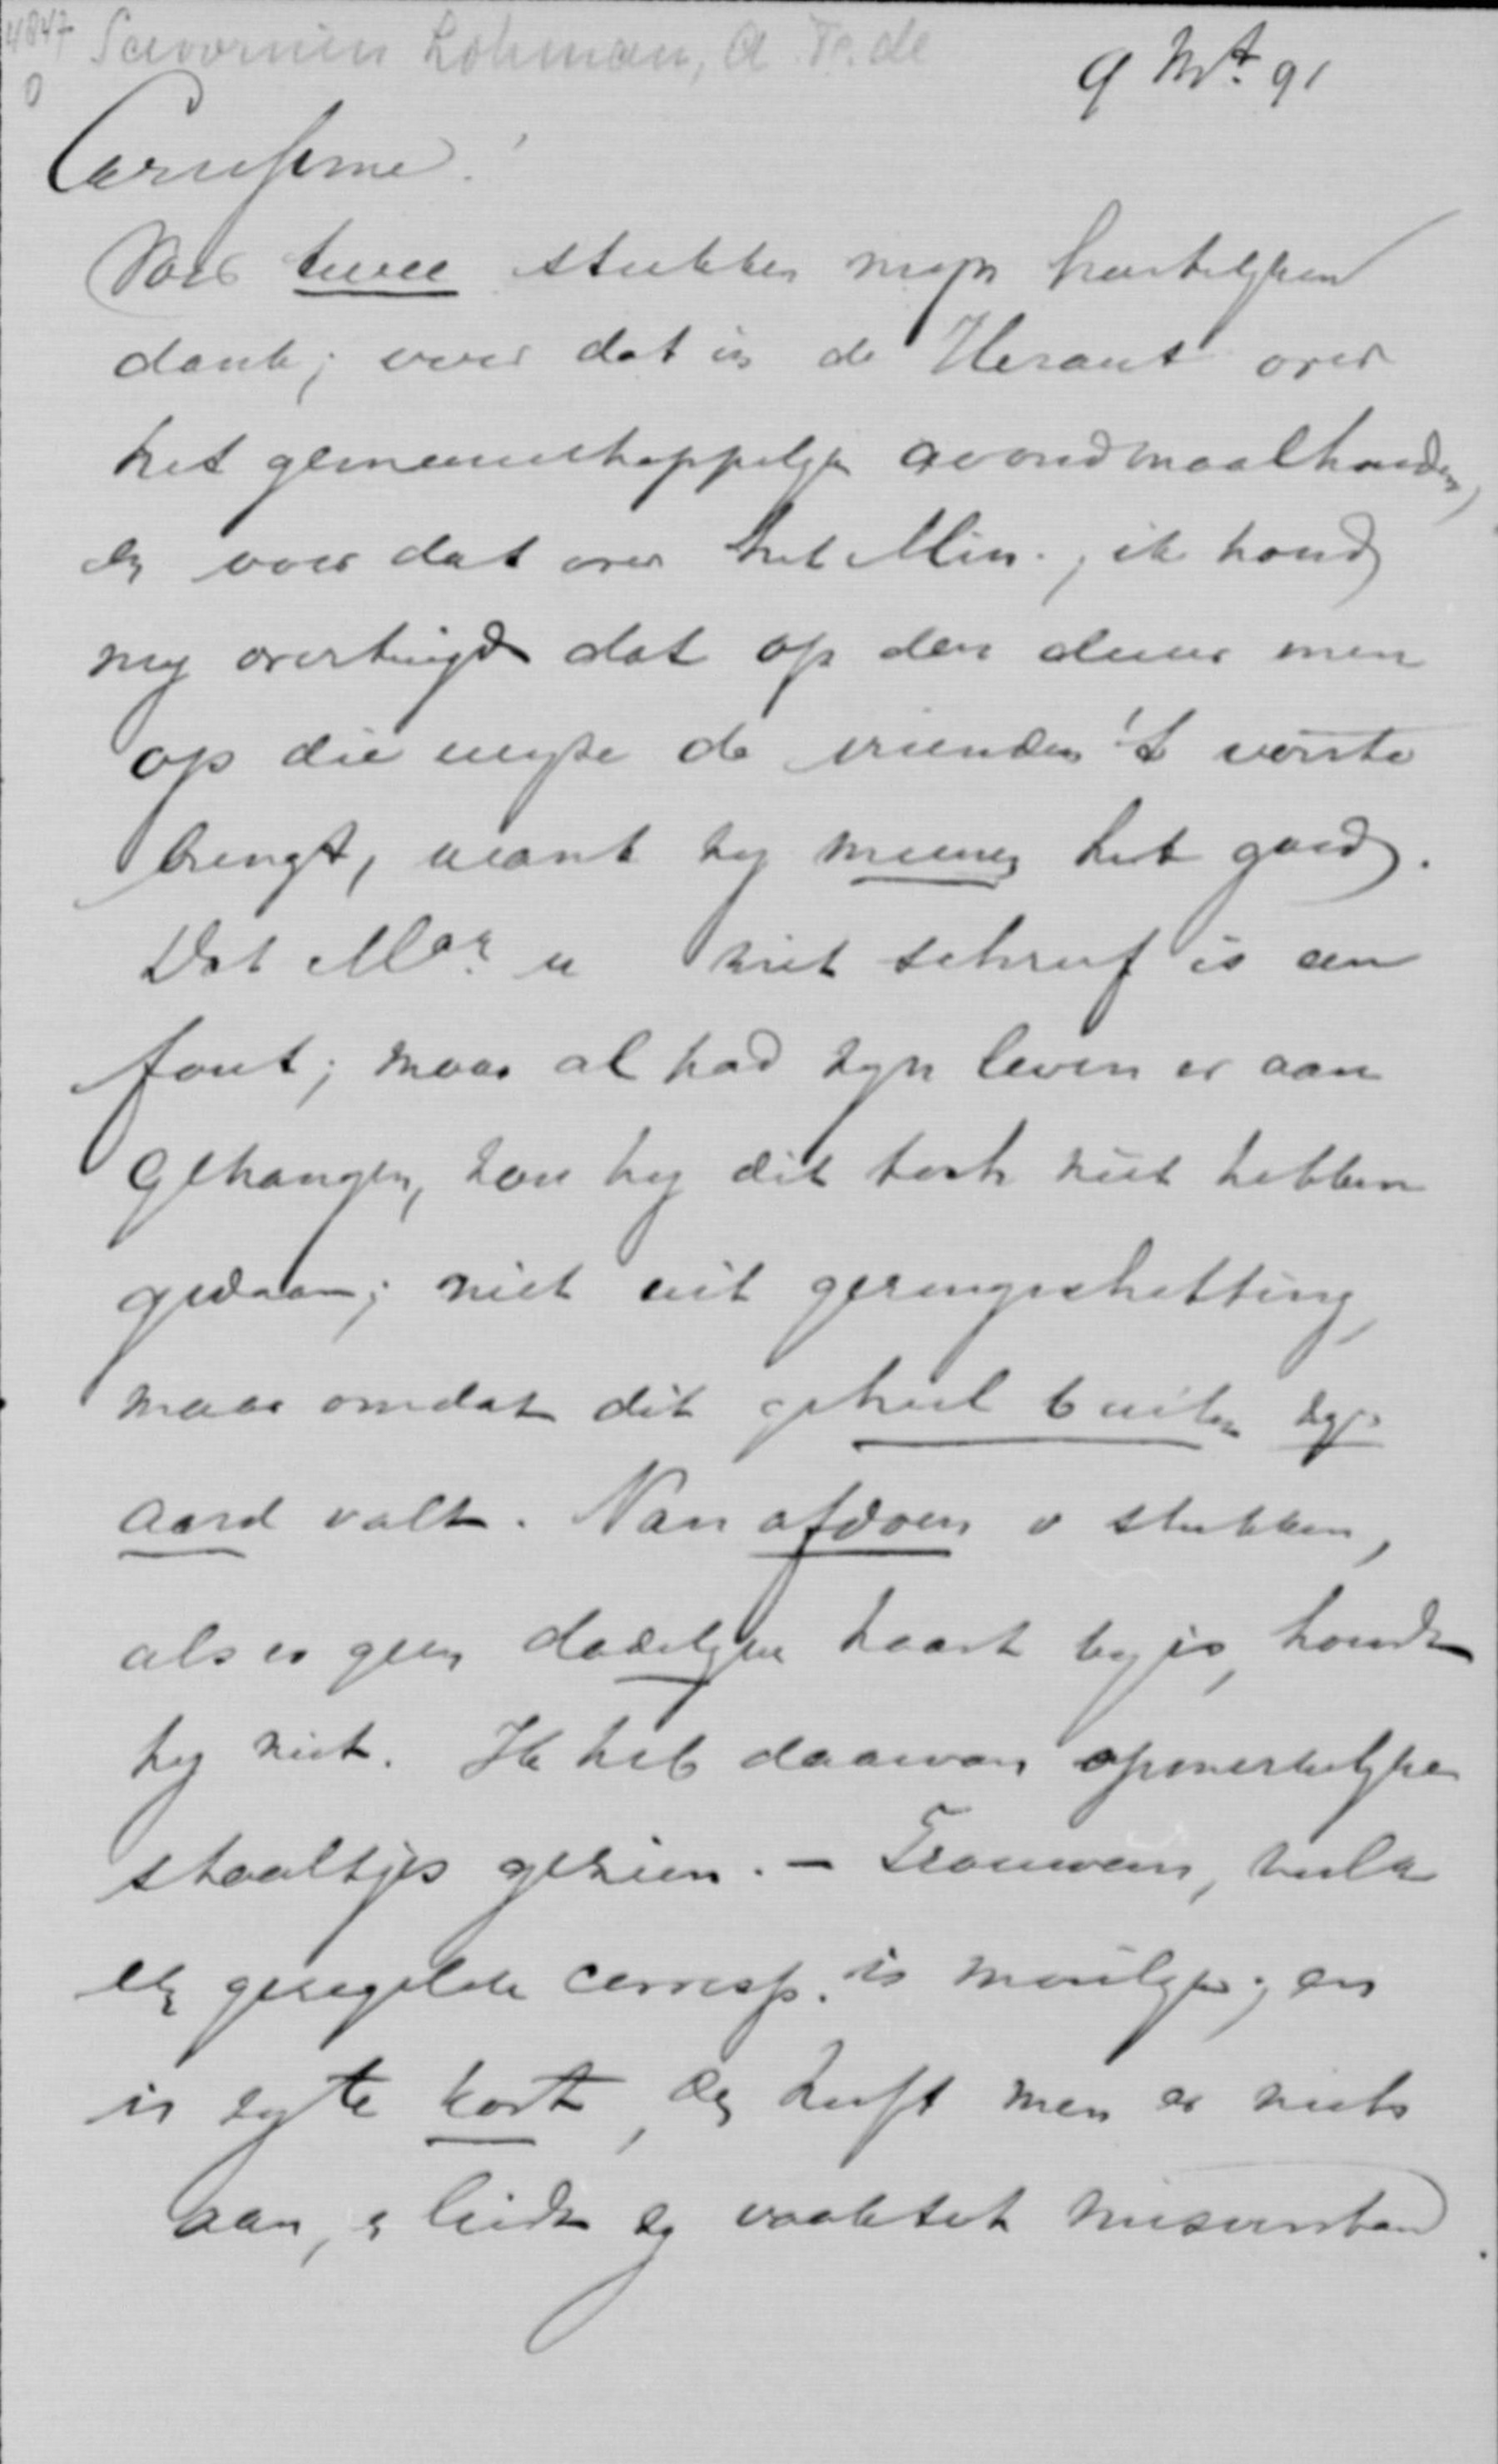 4847 Savornin Lohman, A. F. de
0
9 Mrt. 91
Carissime!
Voor twee stukken mijn hartelijken
dank; voor dat in de Heraut over
het gemeenschappelijk avondmaalhouden,
en voor dat over het Min.; ik houd
mij overtuigd dat op den duur men
op die wijze de vrienden 't verste
brengt, want zij meenen het goed.
Dat u niet schreef is een
fout; maar al had zijn leven er aan
gehangen, zou hij dit toch niet hebben
gedaan; niet uit geringschatting,
maar omdat dit geheel buiten zijn
aard valt. Van afdoen v stukken,
als er geen dadelijke haast bij is, houdt
hij niet. Ik heb daarvan opmerkelijke
staaltjes gezien. — Trouwens, zulk
een geregelde corresp. is moeilijk; en
is zij te kort, dan heeft men er niets
aan, en leidt zij vaak tot misverstand.